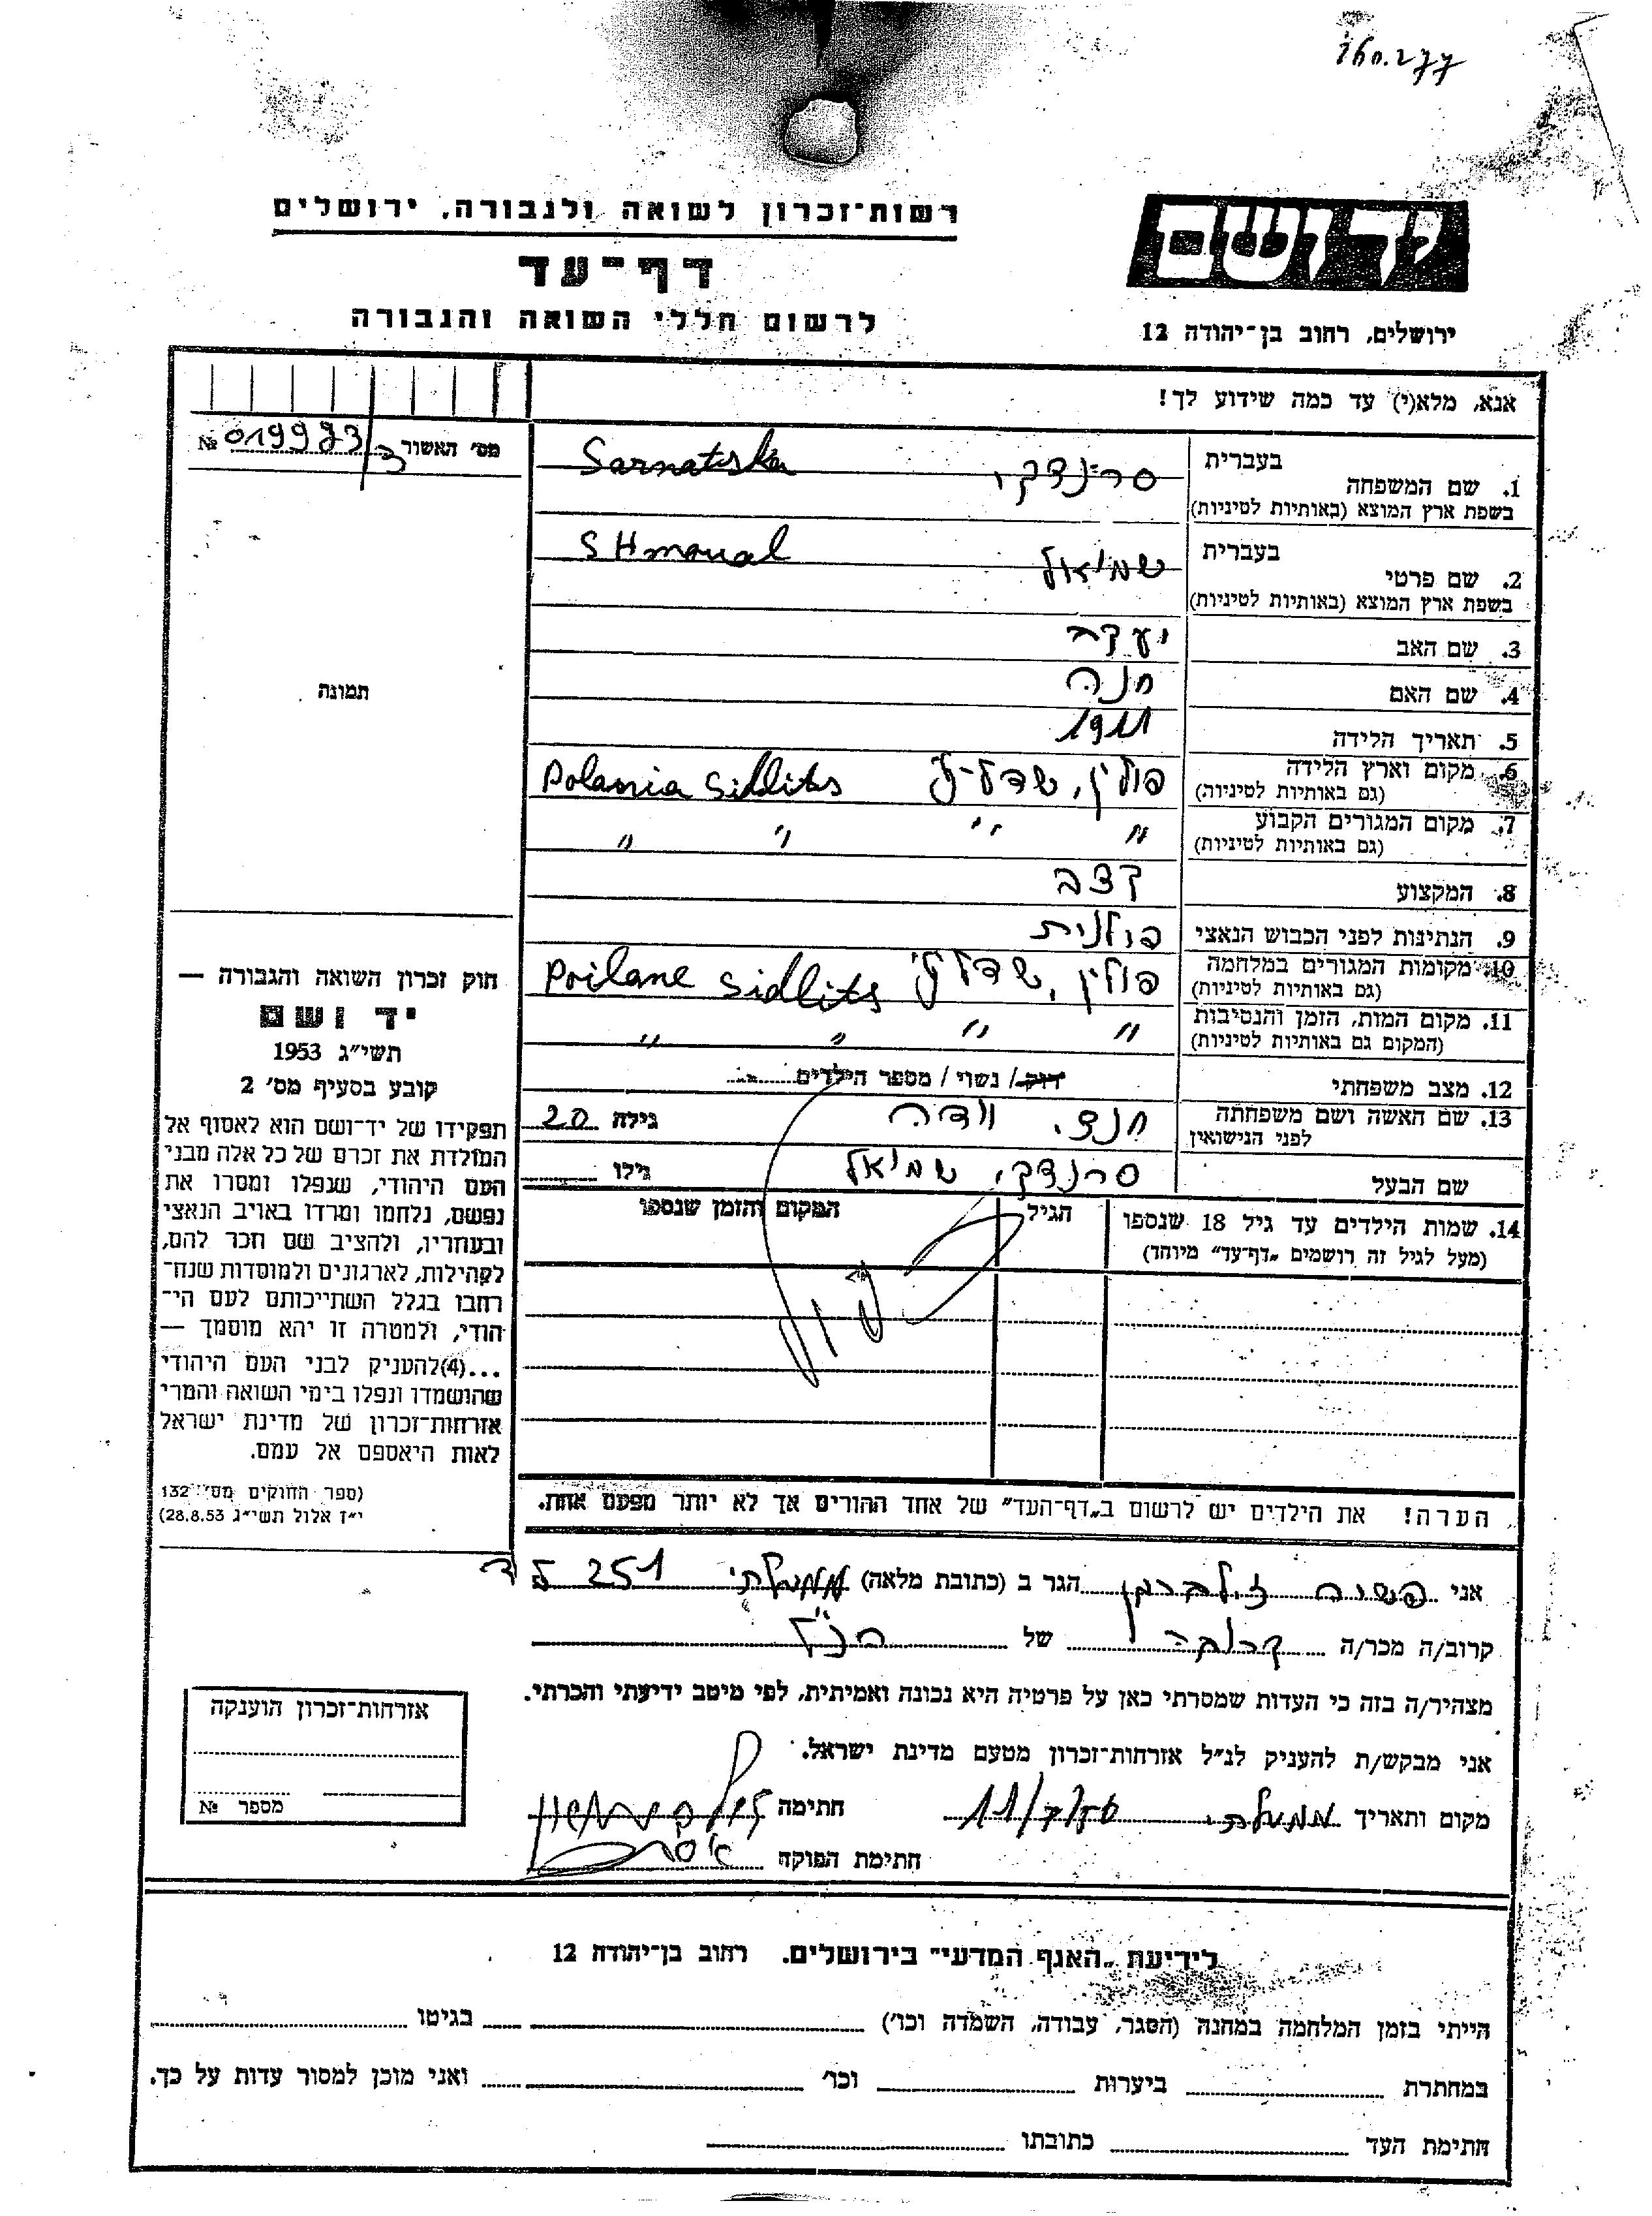 160.277
רשות־זכרון לשואה ולגבורה, ירושלים
ידושם
דף־עד
לרשום חללי השואה והגבורה
ירושלים, רחוב בן־יהודה 12
אנא, מלא(י) עד כמה שידוע לך!
מס׳ האשור № 019973/3
בעברית
1. שם המשפחה
בשפת ארץ המוצא (באותיות לטיניות)
סרנדקי Sarnatska
בעברית
2. שם פרטי
בשפת ארץ המוצא (באותיות לטיניות)
שמואל SHmoual
3. שם האב
4. שם האם חנה
תמונה
5. תאריך הלידה 1911
6. מקום וארץ הלידה
(גם באותיות לטיניות)
פולין, שדליץ Polania Sidlits
7. מקום המגורים הקבוע
(גם באותיות לטיניות)
" " " "
8. המקצוע קצב
9. הנתינות לפני הכבוש הנאצי פולנית
10. מקומות המגורים במלחמה
(גם באותיות לטיניות)
פולין, שדליץ Poilane Sidlits
11. מקום המות, הזמן והנסיבות
(המקום גם באותיות לטיניות)
" " " "
12. מצב משפחתי רוק / נשוי / מספר הילדים
13. שם האשה ושם משפחתה
לפני הנישואין
גילה 20
שם הבעל סרנדקי שמואל גילו
14. שמות הילדים עד גיל 18 שנספו
(מעל לגיל זה רושמים „דף־עד" מיוחד)
הגיל
המקום והזמן שנספו
הערה! את הילדים יש לרשום ב„דף־העד" של אחד ההורים אך לא יותר מפעם אחת.
חוק זכרון השואה והגבורה —
יד ושם
תשי״ג 1953
קובע בסעיף מס׳ 2
תפקידו של יד־ושם הוא לאסוף אל
המולדת את זכרם של כל אלה מבני
העם היהודי, שנפלו ומסרו את
נפשם, נלחמו ומרדו באויב הנאצי
ובעוזריו, ולהציב שם וזכר להם,
לקהילות, לארגונים ולמוסדות שנח־
רחבו בגלל השתייכותם לעם הי־
הודי, ולמטרה זו יהא מוסמך —
...(4) להעניק לבני העם היהודי
שהושמדו ונפלו בימי השואה והמרי
אזרחות־זכרון של מדינת ישראל
לאות היאספם אל עמם.
(ספר החוקים מס׳ 132
י״ז אלול תשי״ג 28.8.53)
אני זילברמן הגר ב (כתובת מלאה) 251
קרוב/ה מכר/ה קרובה של הנ״ל
מצהיר/ה בזה כי העדות שמסרתי כאן על פרטיה היא נכונה ואמיתית, לפי מיטב ידיעתי והכרתי.
אני מבקש/ת להעניק לנ״ל אזרחות־זכרון מטעם מדינת ישראל.
מקום ותאריך חתימה
חתימת הפוקד
אזרחות־זכרון הוענקה
מספר №
לידיעת „האגף המדעי" בירושלים, רחוב בן־יהודה 12
הייתי בזמן המלחמה במחנה (הסגר, עבודה, השמדה וכו׳) בגיטו
במחתרת ביערות וכו׳ ואני מוכן למסור עדות על כך.
חתימת העד כתובתו